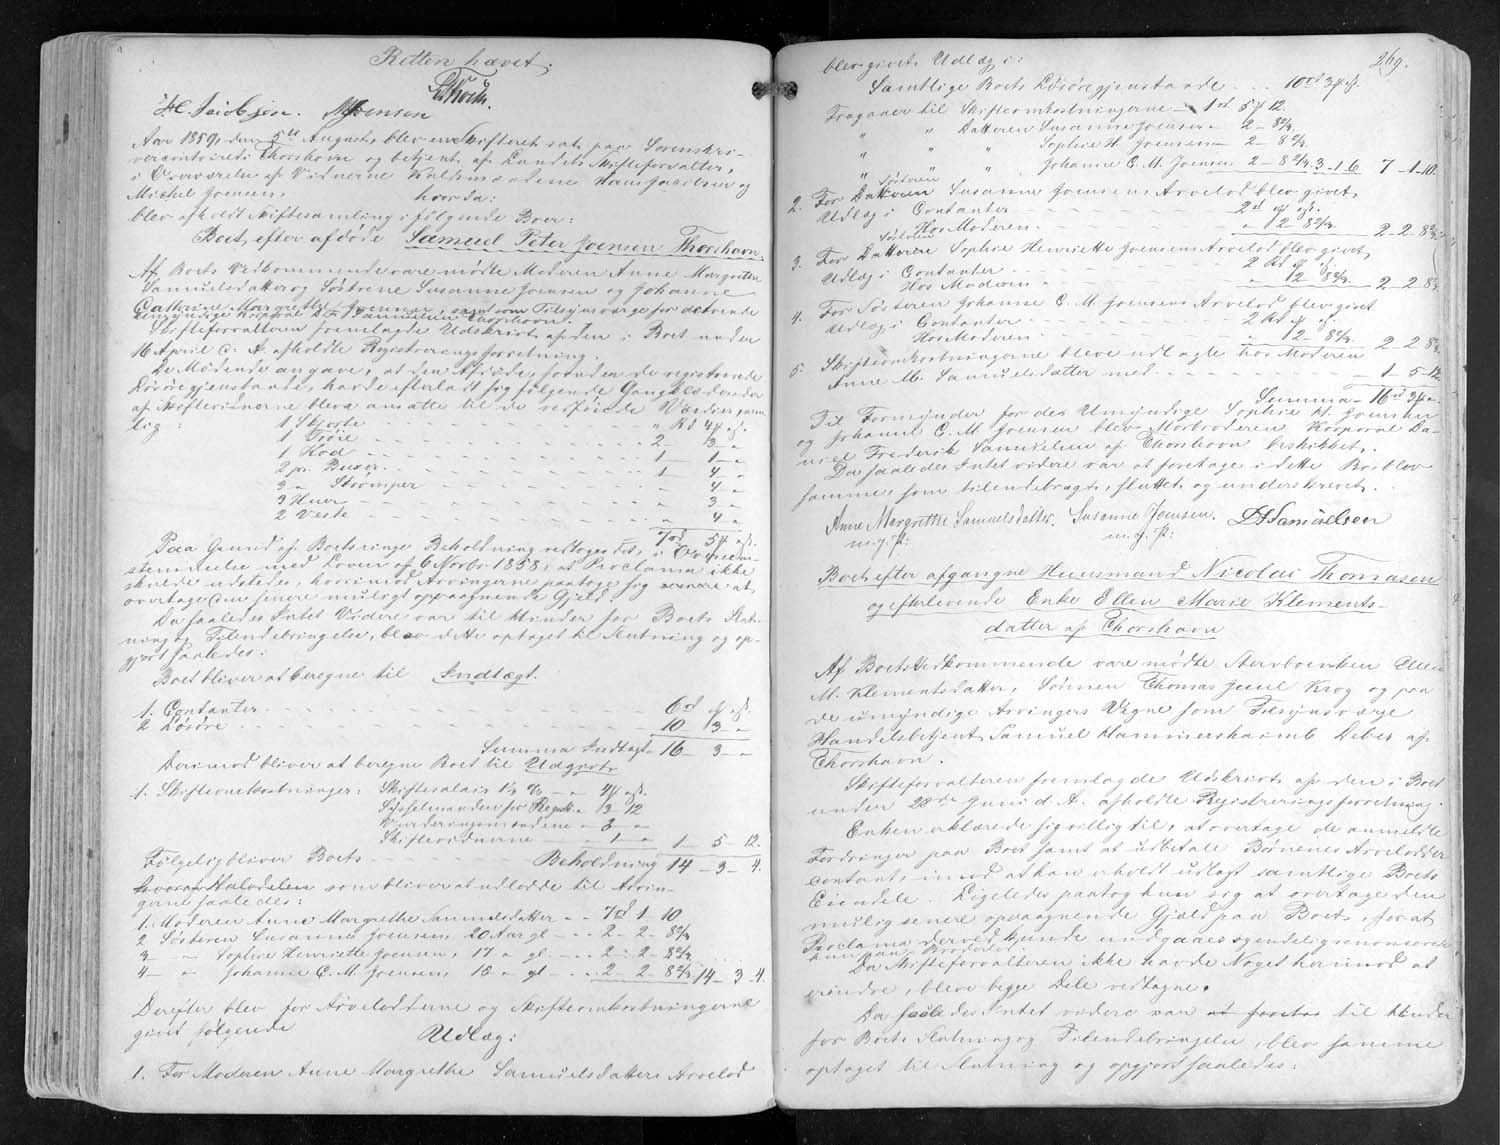 Retten hævet.
H. Jacobsen. MJoensen
Aar 1859, den 5te August, blev en Skifteret sat paa Sorenskri-
vercontoiret i Thorshavn og betjent af Landets Skifteforvalter,
i Overværelse af Vidnerne Kaldsmændene Hans Jacobsen og
Michel Joensen,
hvorda:
blev afholdt Skiftesamling i følgende Boer:
Boet efter afdøde Samuel Peter Joensen Thorshavn
Af Boets Vedkommende vare mødte Moderen Anne Margrethe
Samuelsdatter og Søstrene Susanne Joensen og Johanne
Cathrine Margrethe Joensen, samt som Tilsynsværge for de tvende
umyndige Korporal D. F. Samuelsen Thorshavn.
Skifteforvalteren fremlagde Udskrivt af den i Boet under
16 April d. A. afholdte Registreringsforretning.
De Mødende angave, at den Afdøde, foruden de registrerede
Løsøregjenstande, havde efterladt sig følgende Gangklæder, der
af Skiftevidnerne bleve ansatte til de vedføiede Værdier, nem-
lig:
1 Skjorte - - - " Rd 4 ꝟ ß.
1 Trøie - - - 2 3 "
1 Hod - - - 1 1 "
2 pr. Buxer - - - 1 4 "
3 " Strømper - - - 4 "
3 Huer - - - 3 "
2 Veste - - - " 4 "
7rd 5 ꝟ ß.
Paa Grund af Boets ringe Beholdning vedtoges det, i Overeens-
stemmelse med Loven af 6 Novbr. 1858, at Proclama ikke
skulde udstedes, hvorimod Arvingerne paatoge sig at
overtage den senere muligt opdagende Gjæld.
Da saaledes Intet Videre var til Hinder for Boets Slut-
ning og Tilendebringelse, blev dette optaget til Slutning og op-
gjort saaledes:
Boet bliver at beregne til Indtægt.
1. Contanter - - - 6rd ꝟ ß.
2 Løsøre - - - 10 3 "
Summa Indtægt 16 - 3 - "
Derimod bliver at beregne Boet til Udgivt
1. Skifteomkostninger: Skiftesalair 1½ % - " 4ꝟ ß.
Sysselmanden for Registr. " 3 12
Vurderingsmændene " 3 "
Skiftevidnerne - " 1 " 1 - 5 - 12.
Følgelig bliver Boets - - - Beholdning 14 - 3 - 4.
som bliver at udlodde til Arvin-
gerne saaledes:
1. Moderen Anne Margrethe Samuelsdatter - - 7rd 1 - 10
2 Søsteren Susanne Joensen, 20 Aar gl - - 2 - 2 - 8⅔
3 - " Sophie Henriette Joensen, 17 " gl. - - 2 - 2 - 8⅔
4 - " Johanne C. M. Joensen, 15 " gl - - 2 - 2 8⅔ 14 - 3 - 4.
Derefter blev for Arvelodderne og Skifteomkostningerne
givet følgende
Udlæg:
1. For Moderen Anne Margrethe Samuelsdatters Arvelod
269.
blev givet Udlæg i:
Samtlige Boets Løsøregjenstande - - - 10rd 3ꝟ ß.
Fragaaer til Skifteomkostningerne 1rd 5ꝟ 12.
" " Datteren Susanne Joensen - 2 - 8⅔.
" " " Sophie H Joensen - 2 - 8⅔.
" Søsteren " Johanne C. M. Joensen 2 - 8⅔ 3 - 1 6 7 - 1 - 10.
2. For Søsteren Susanne Joensens Arvelod blev givet
Udlæg i Contanter - - - 2rd ꝟ ß.
Hos Moderen - - - " 2 8⅔. 2 - 2 - 8⅔.
3. For Søsteren Sophie Henriette Joensens Arvelod blev givet
Udlæg i Contanter - - - 2 Rd ꝟ ß.
Hos Moderen - - - " 2 8⅔. 2 - 2 8⅔.
4. For Søsteren Johanne C. M. Joensens Arvelod blev givet
Udlæg i Contanter - - - 2 Rd ꝟ ß.
Hos Moderen - - - " 2 - 8⅔. 2 - 2 8⅔.
5. Skifteomkostningerne bleve udlagte hos Moderen
Anne M. Samuelsdatter med - - - 1 - 5 - 12.
Summa - 16rd 3ꝟ "
Til Formynder for de Umyndige Sophie H. Joensen
og Johanne C. M. Joensen blev Morbroderen Korporal Da-
niel Frederik Samuelsen af Thorshavn beskikket.
Da saaledes Intet videre var at foretage i dette Bo, blev
samme, som tilendebragt, sluttet og underskrevet.
Anne Margrethe Samuelsdatter. Susanne Joensen. DFSamuelsen
m. f. P: m. f. P:
Boet efter afgangne Huusmand Nicolai Thomasen
og efterlevende Enke Ellen Marie Klements-
datter af Thorshavn
Af Boets Vedkommende vare mødte Stervboenken Ellen
M. Klementsdatter, Sønnen Thomas Juul Krog og paa
de umyndige Arvingers Vegne som Tilsynsværge
Handelsbetjent Samuel Hammershaimb Debes af
Thorshavn.
Skifteforvalteren fremlagde Udskrivt af den i Boet
under 28de Juni d. A. afholdte Registreringsforretning.
Enken erklærede sig villig til, at overtage de anmeldte
Fordringer paa Boet samt at udbetale Børnenes Arvelodder
contant, imod at hun erholdt udlagt samtlige Boets
Eiendele. Ligeledes paatog hun sig at overtage den
mulig senere opdagende Gjæld paa Boet, for at
Proclama derved kunde undgaaes
Da Skifteforvalteren ikke havde Noget herimod at
erindre, bleve begge Dele vedtagne.
Da saaledes Intet videre var at foretas til Hinder
for Boets Slutning og Tilendebringelse, blev samme
optaget til Slutning og opgjort saaledes: